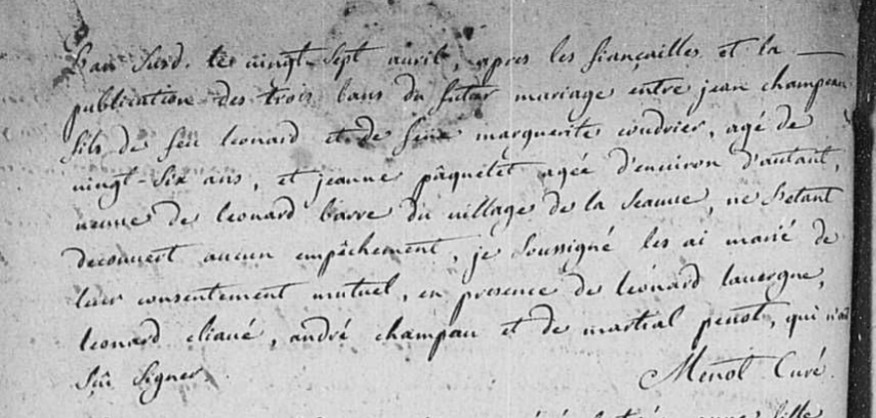 L'an susd. le vingt-sept avril, apres les fiançailles et la
publication des trois bans du futur mariage entre jean champeau
fils de feu leonard et de feue marguerite coudrier, agé de
vingt-six ans, et jeanne pâquetet agée d'environ d'autant,
veuve de leonard barre du village de la Seauve, ne s'etant
decouvert aucun empêchement, je soussigné les ai marié de
leur consentement mutuel, en presence de leonard lavergne,
leonard eliavé, andré champau et de martial penot, qui n'ai
sçû signer.
Menot Curé.